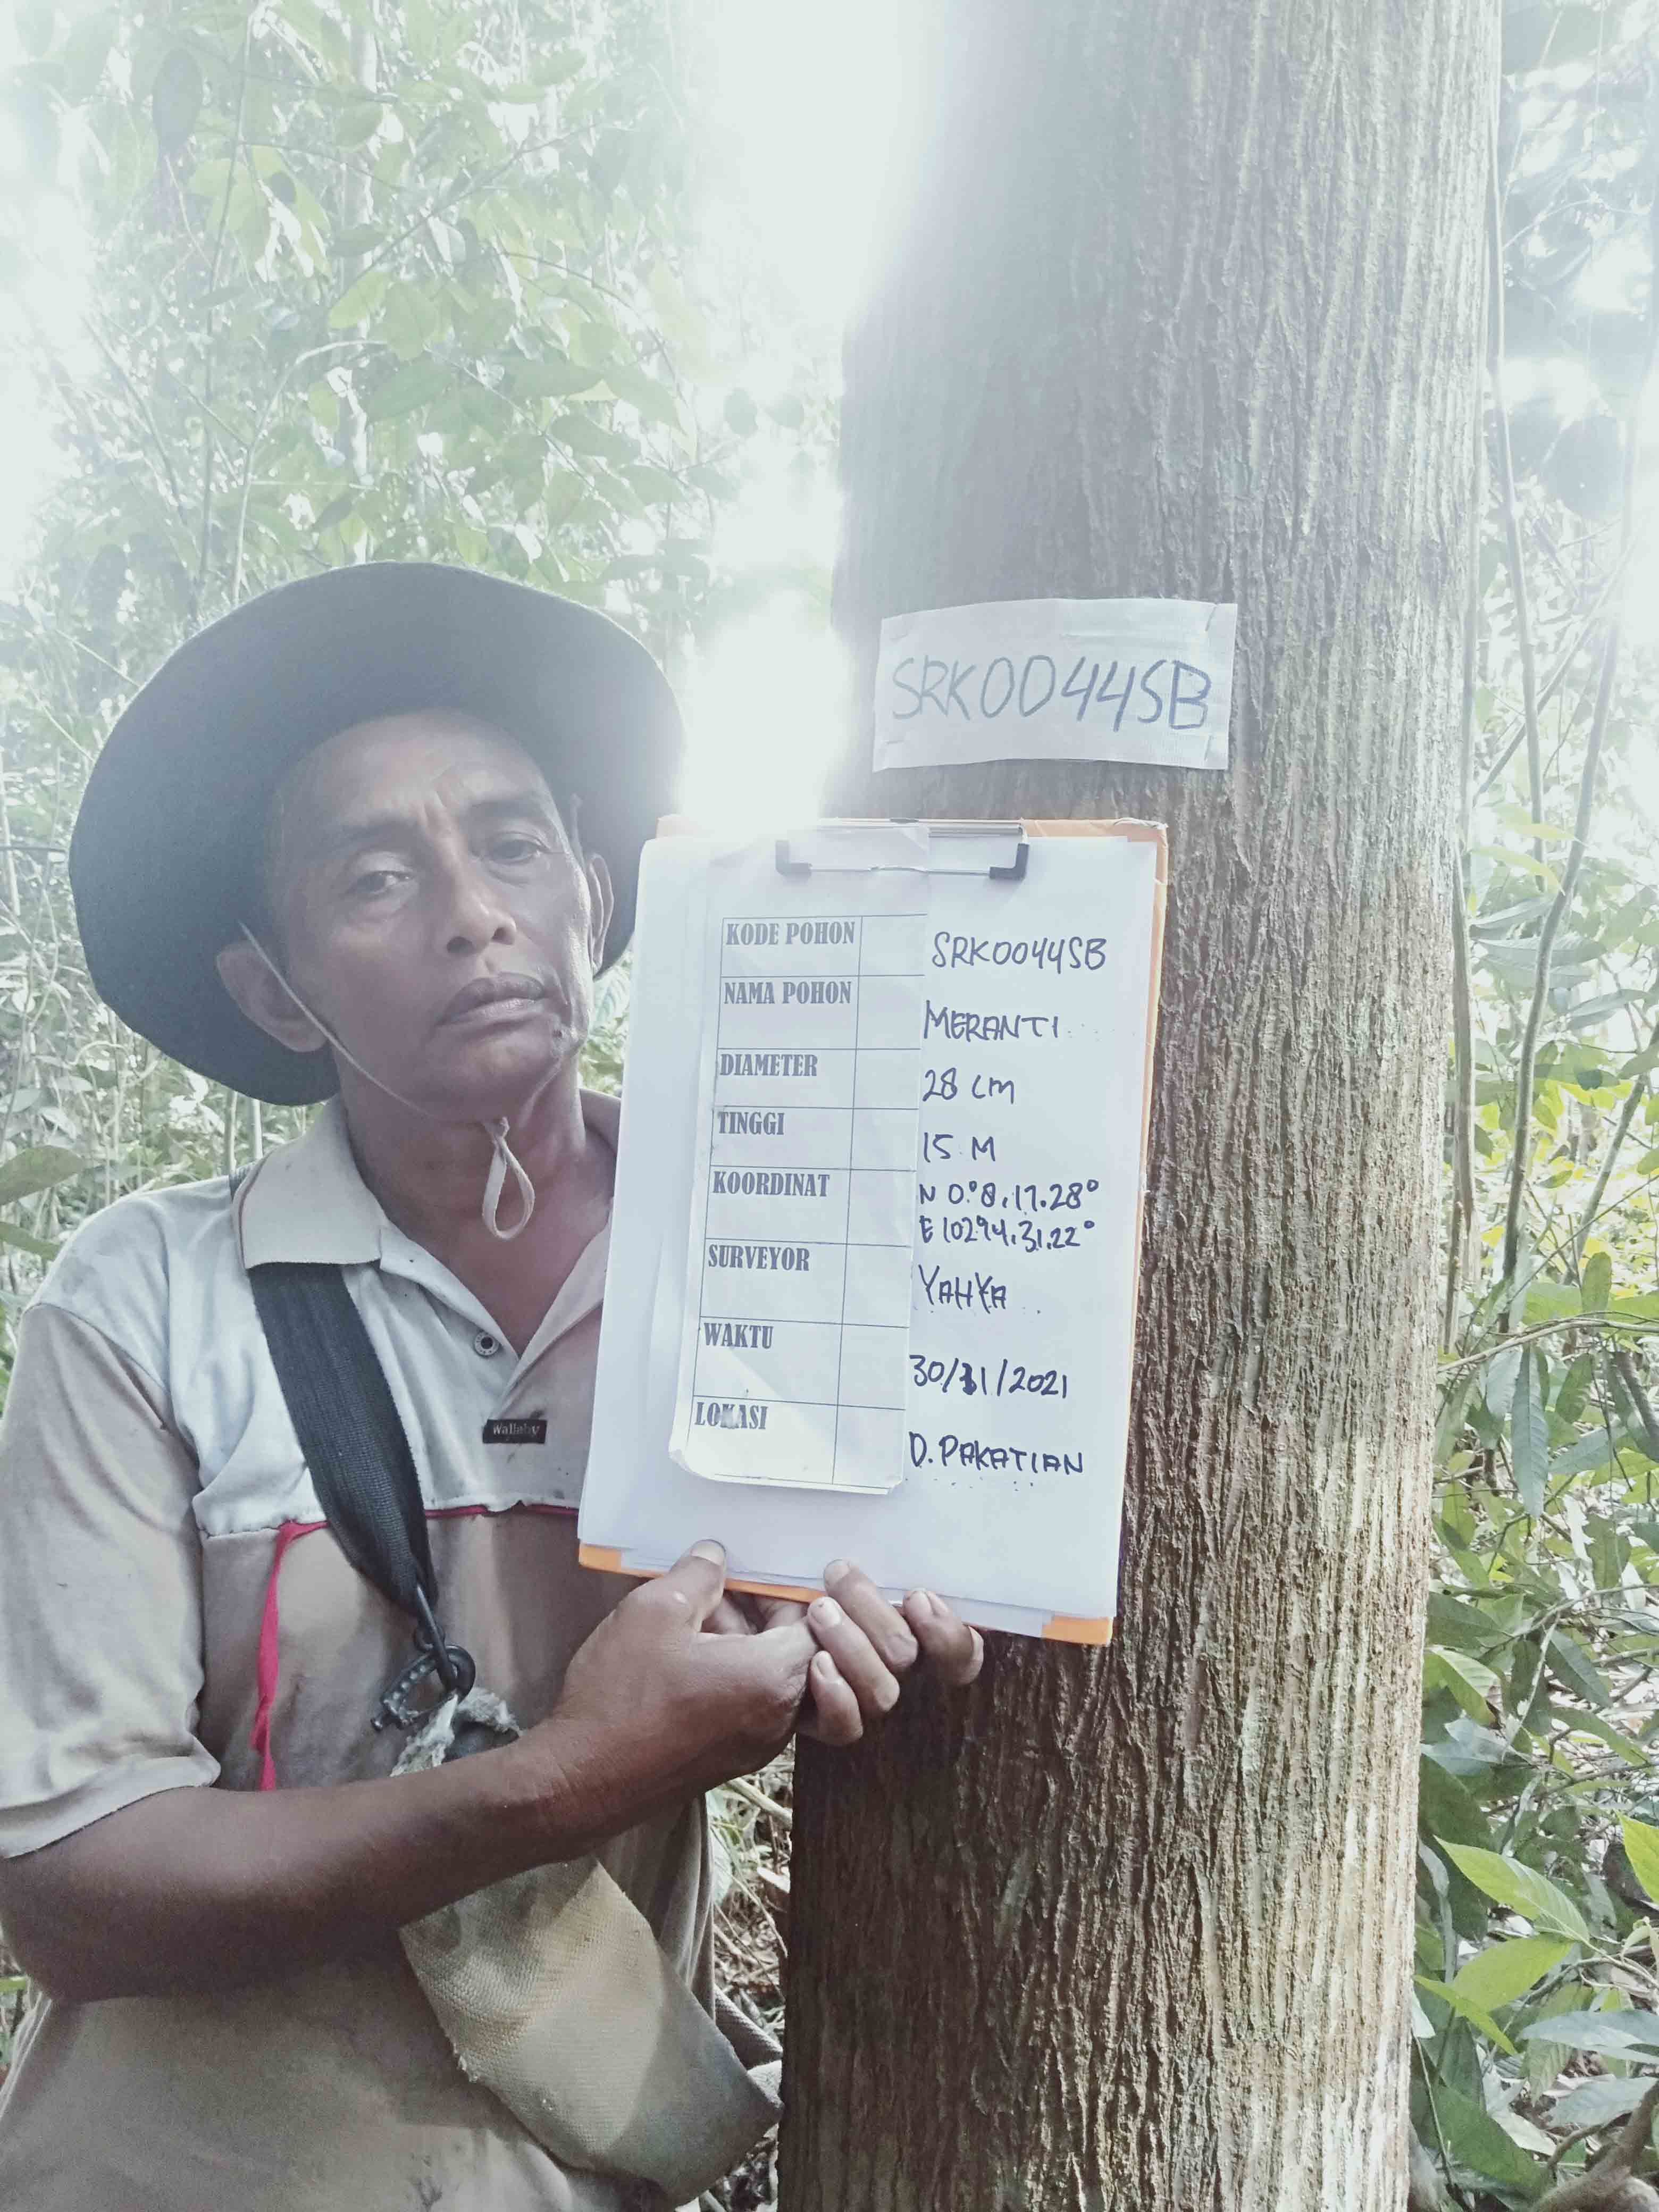 SRK0044SB
KODE POHON SRK0044SB
NAMA POHON MERANTI
DIAMETER 28 cm
TINGGI 15 M
KOORDINAT N 0.°8.17.28°
E 10294.31.22°
SURVEYOR YAHYA
WAKTU 30/11/2021
LOKASI D. PAKATIAN
Wallaby